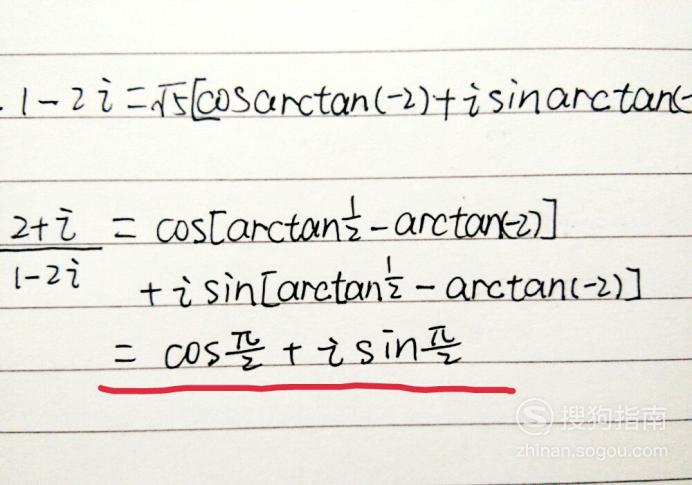 . 1-2i=√5[cosarctan(-2)+isinarctan(-
2+i/1-2i = cos[arctan1/2-arctan(-2)]
+isin[arctan1/2-arctan(-2)]
=cosπ/2+isinπ/2
S 搜狗指南
zhinan.sogou.com